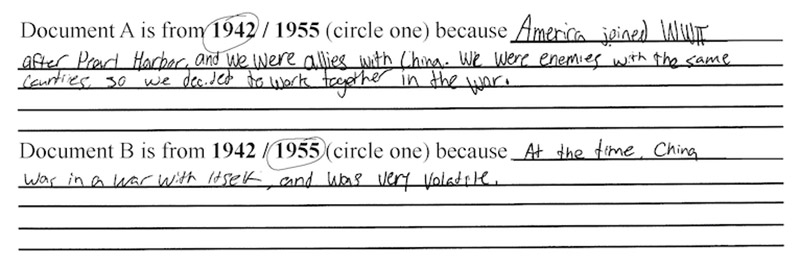 Document A is from 1942 / 1955 (circle one) because America joined WWII
after Pearl Harbor, and we were allies with China. We were enemies with the same
countries, so we decided to work together in the war.
Document B is from 1942 / 1955 (circle one) because At the time, China
was in a war with itself, and was very volatile.